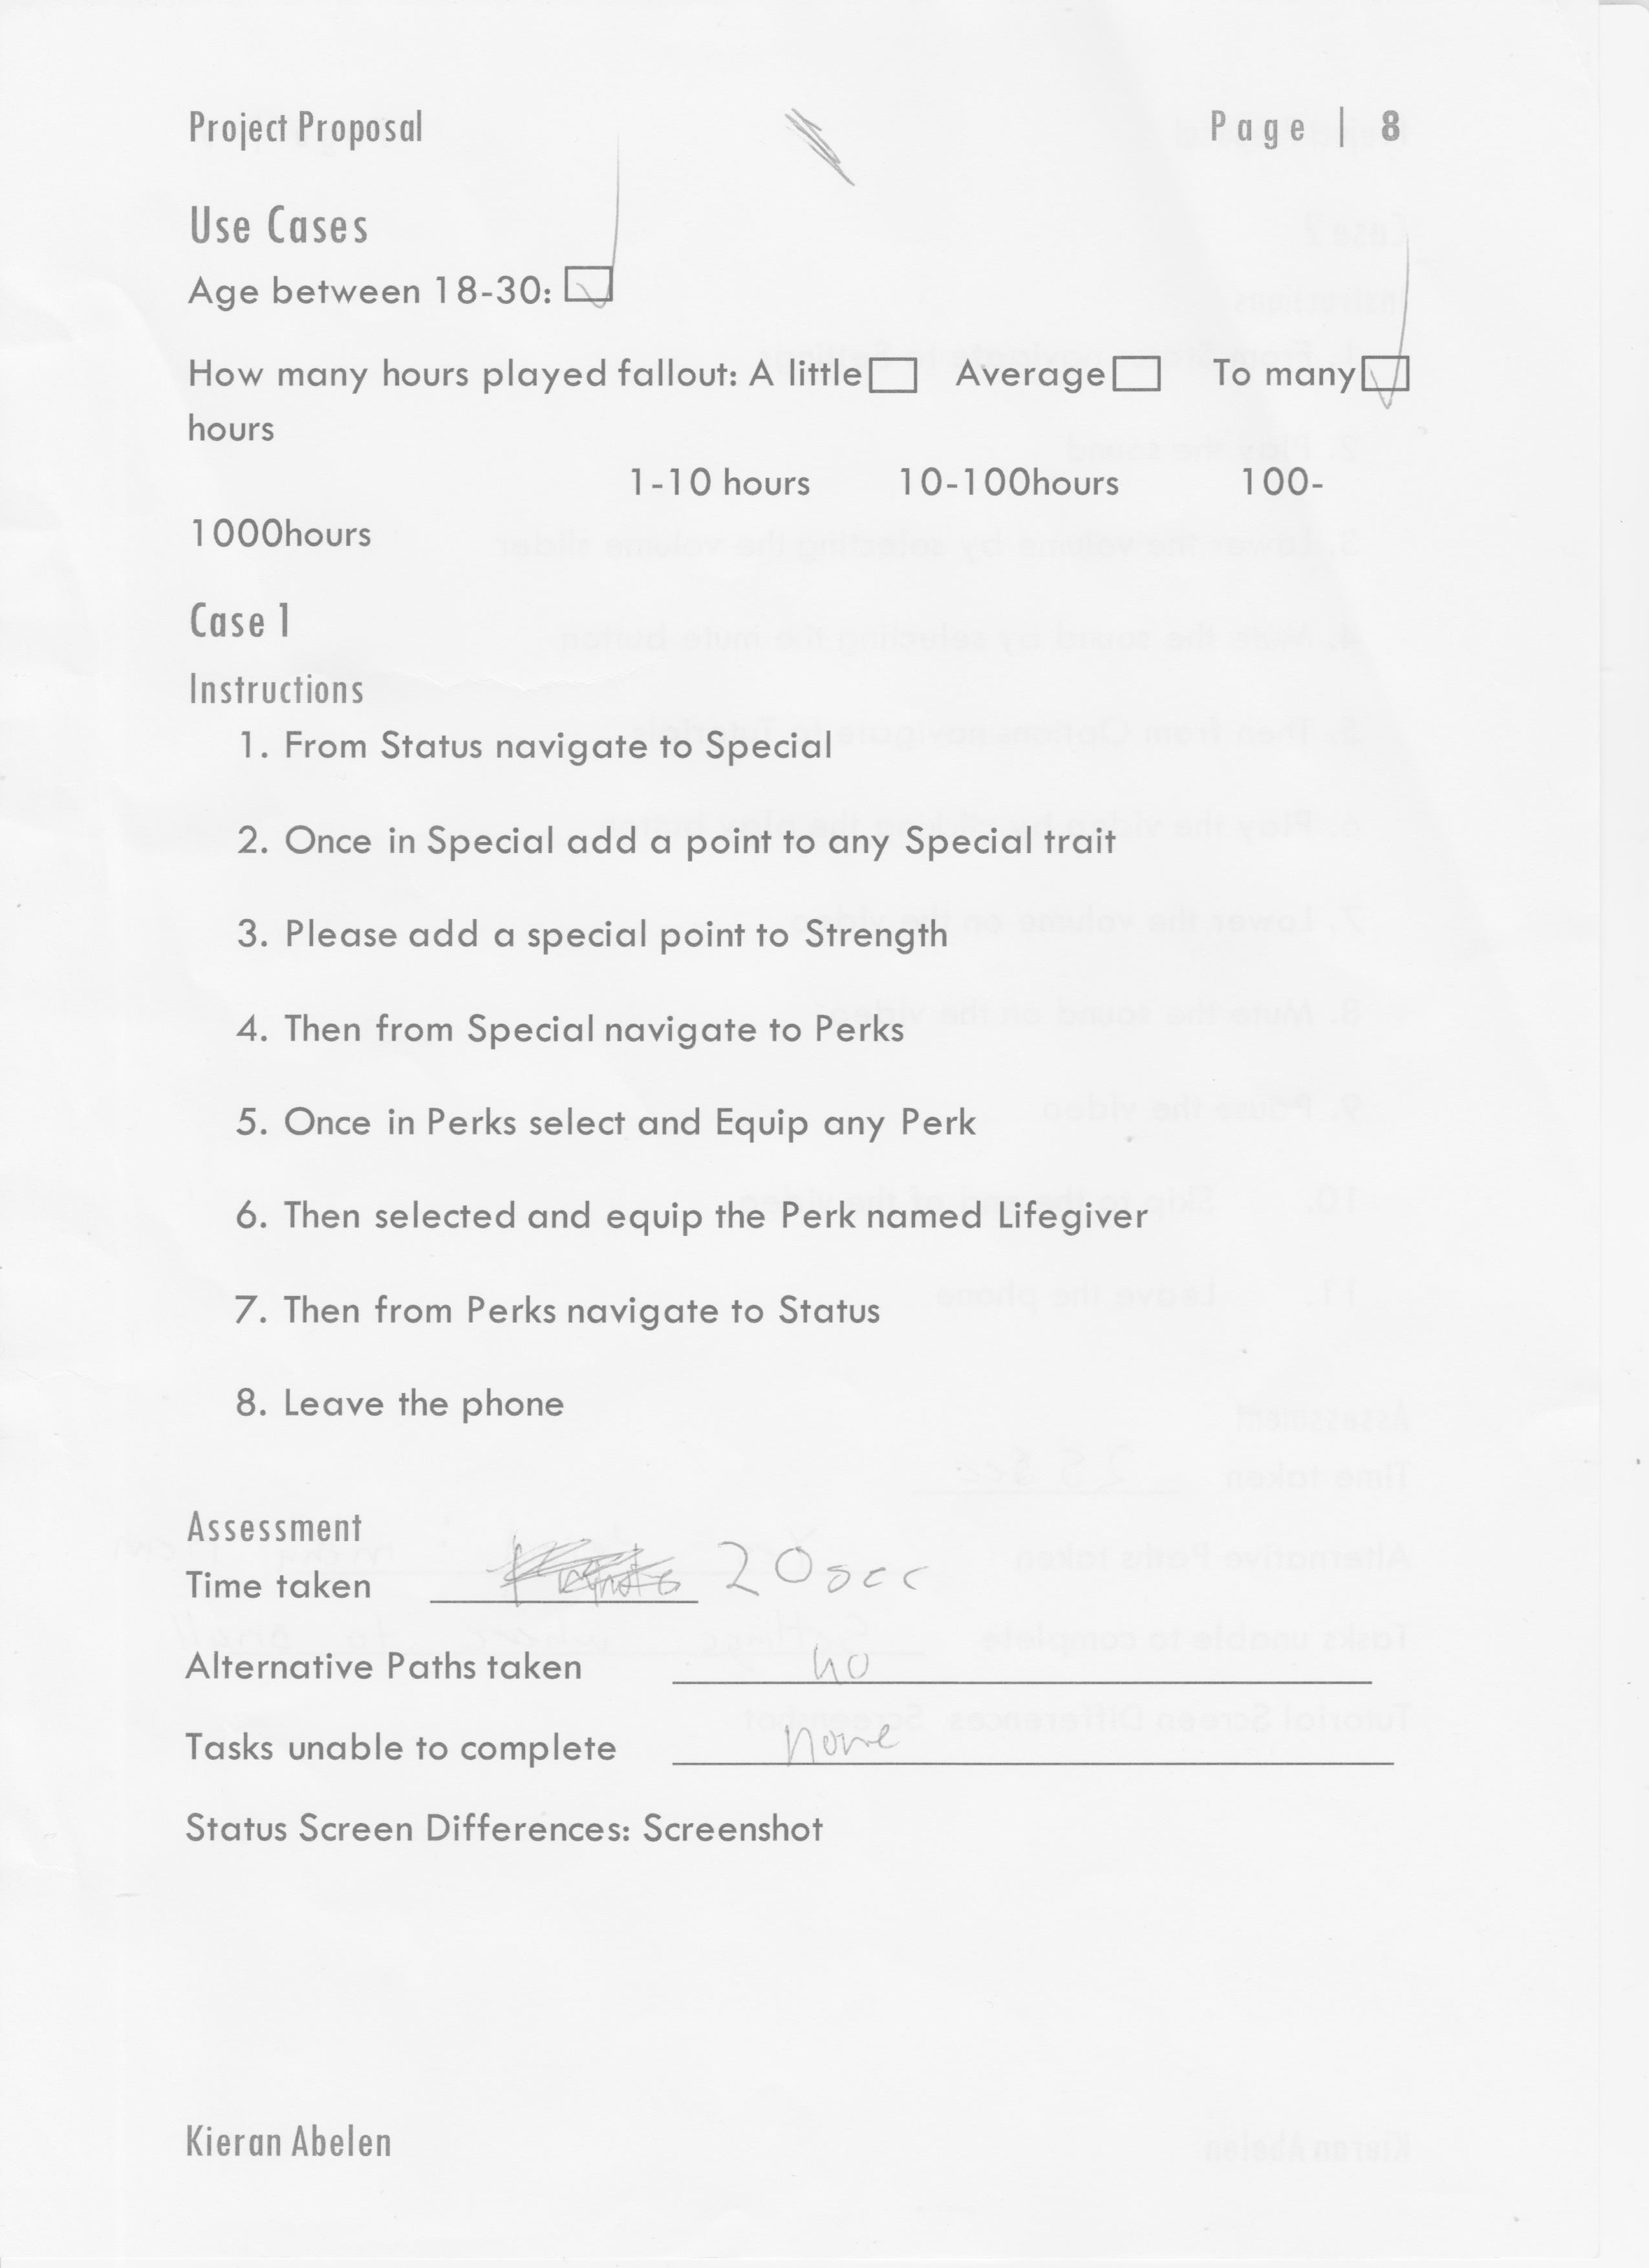 Project Proposal Page | 8
Use Cases
Age between 18-30:
How many hours played fallout: A little Average To many
hours
1-10 hours 10-100hours 100-
1000hours
Case 1
Instructions
1. From Status navigate to Special
2. Once in Special add a point to any Special trait
3. Please add a special point to Strength
4. Then from Special navigate to Perks
5. Once in Perks select and Equip any Perk
6. Then selected and equip the Perk named Lifegiver
7. Then from Perks navigate to Status
8. Leave the phone
Assessment
Time taken 20sec
Alternative Paths taken no
Tasks unable to complete none
Status Screen Differences: Screenshot
Kieran Abelen